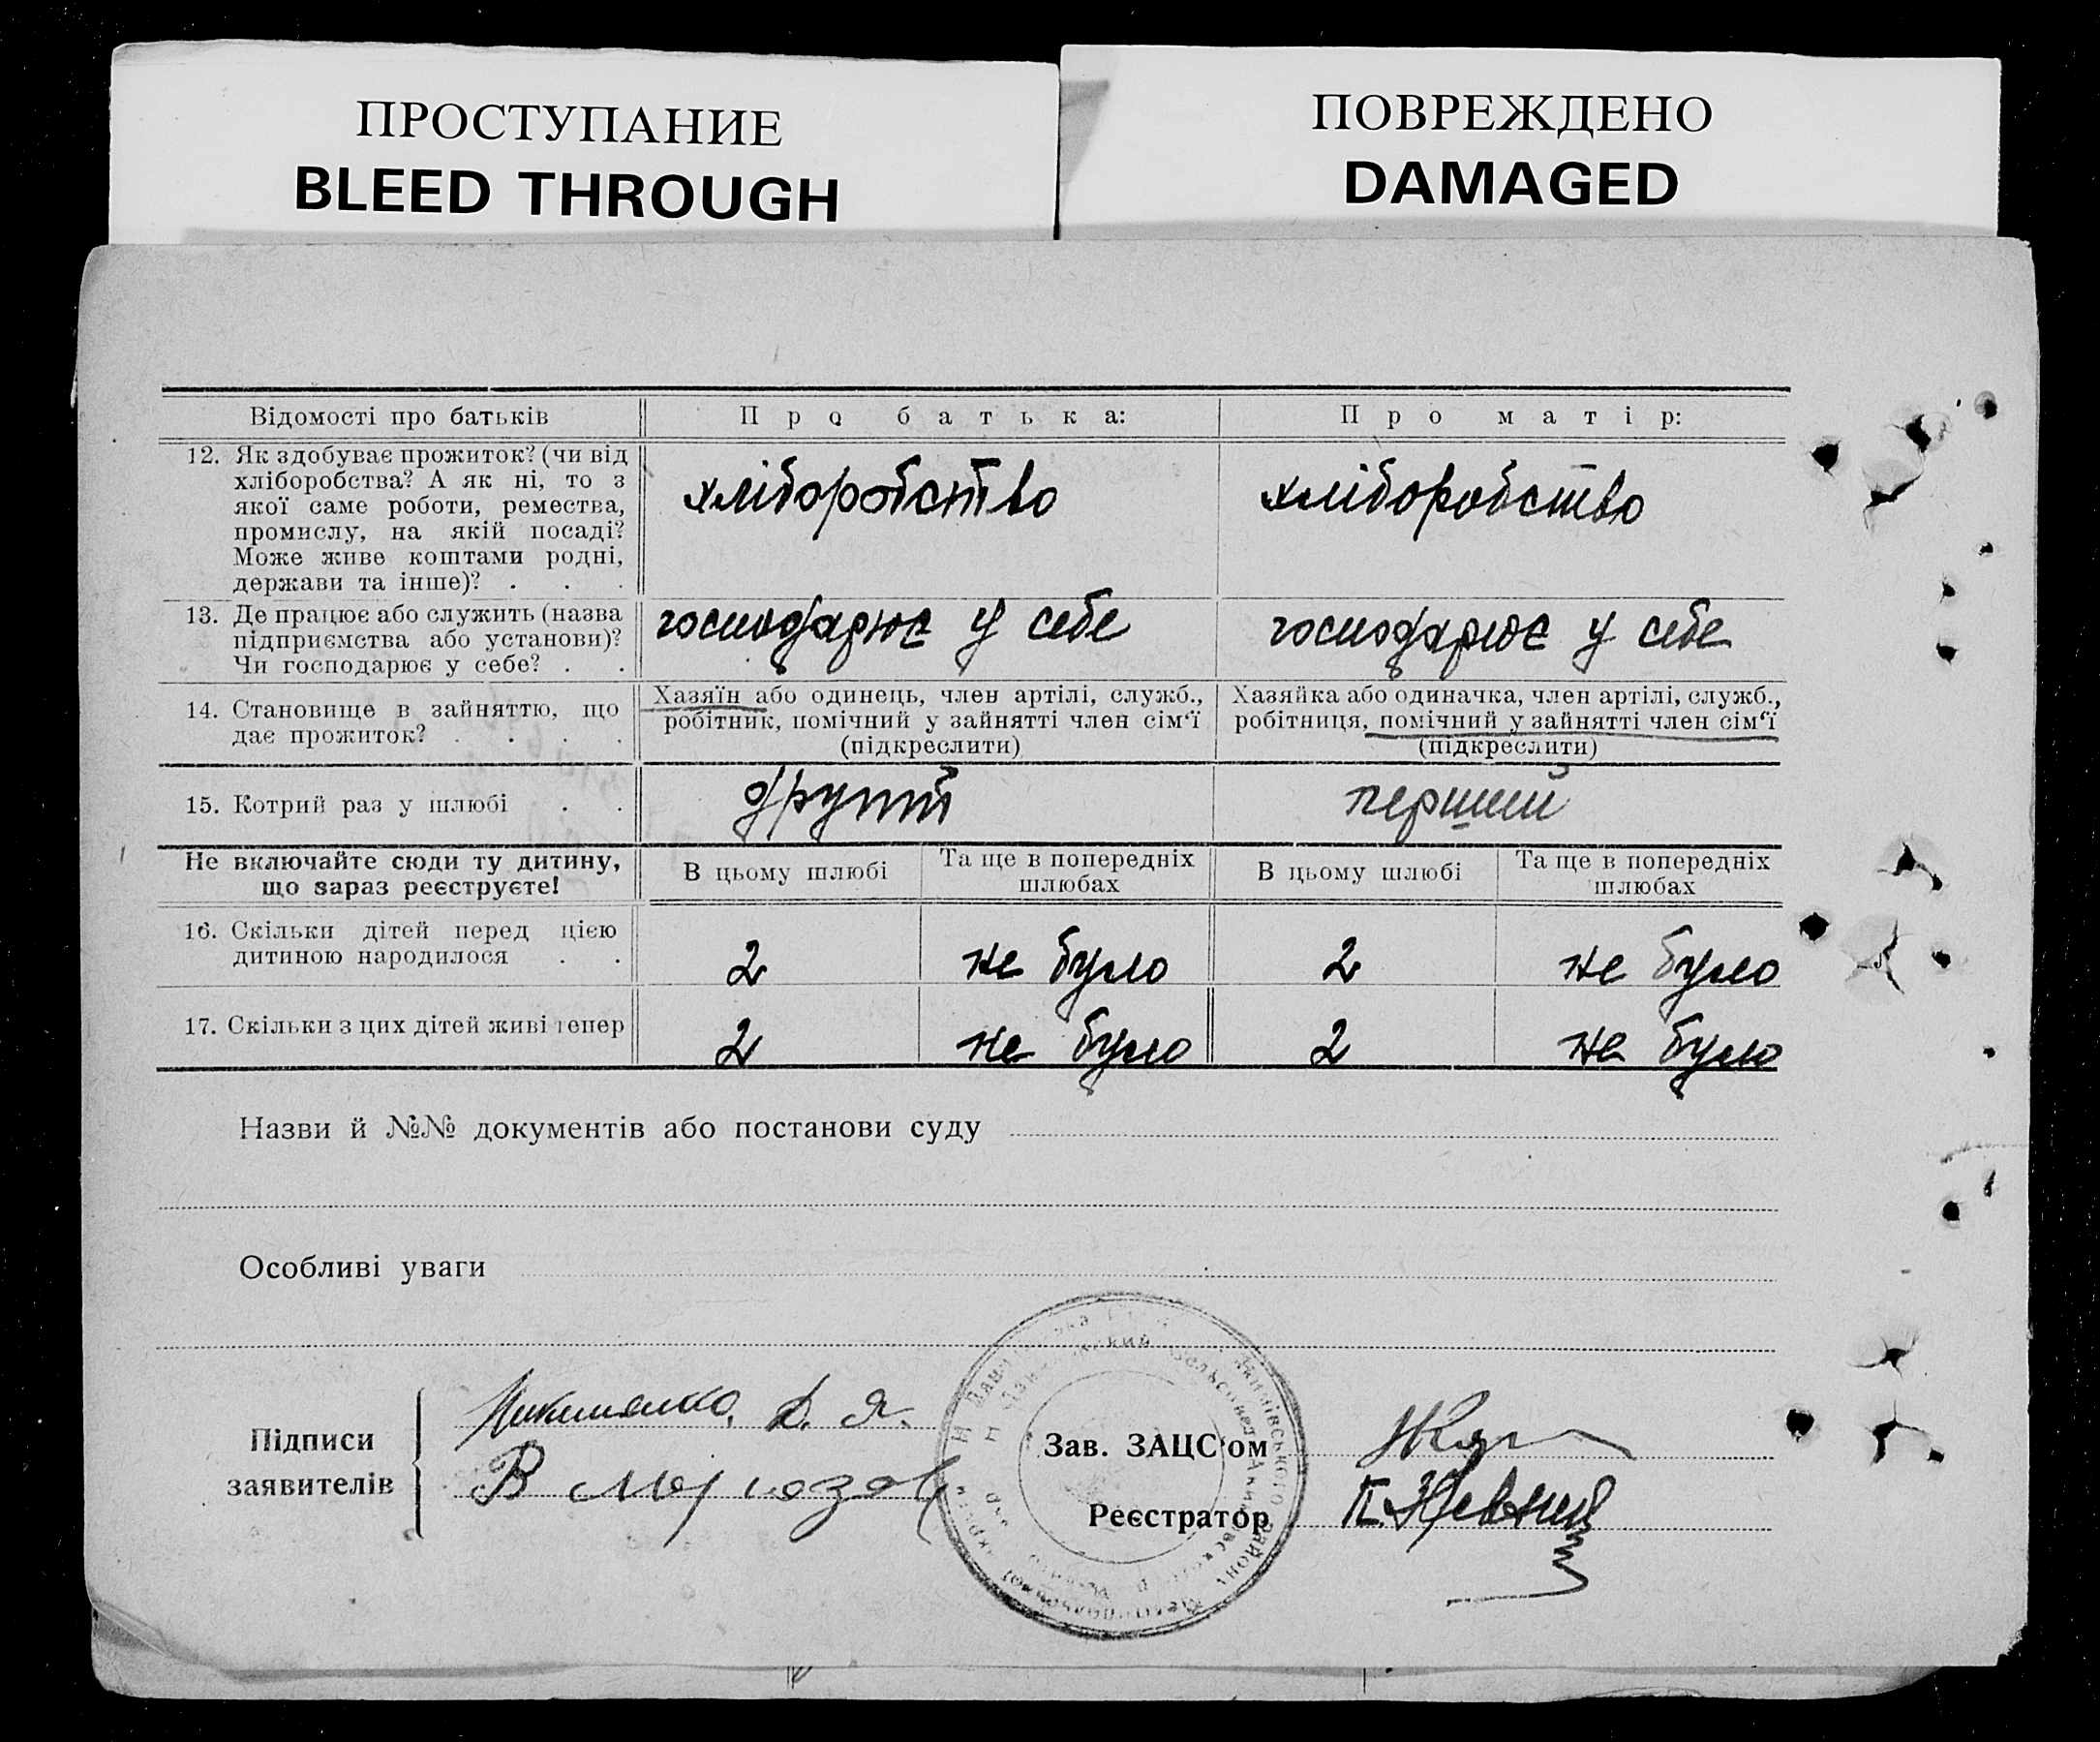 ПРОСТУПАНИЕ
BLEED THROUGH
ПОВРЕЖДЕНО
DAMAGED
Відомості про батьків
Про батька:
Про матір:
12. Як здобуває прожиток? (чи від
хліборобства? А як ні, то з
якої саме роботи, ремества,
промислу, на якій посаді?
Може живе коштами родні,
держави та інше)? . . .
хліборобство
хліборобство
13. Де працює або служить (назва
підприємства або установи)?
Чи господарює у себе? . .
господарює у себе
господарює у себе
14. Становище в зайняттю, що
дає прожиток? . . . .
Хазяїн або одинець, член артілі, служб.,
робітник, помічний у зайнятті член сім'ї
(підкреслити)
Хазяйка або одиначка, член артілі, служб.,
робітниця, помічний у зайнятті член сім'ї
(підкреслити)
15. Котрий раз у шлюбі . .
другий
перший
Не включайте сюди ту дитину,
що зараз реєструєте!
В цьому шлюбі
Та ще в попередніх
шлюбах
В цьому шлюбі
Та ще в попередніх
шлюбах
16. Скільки дітей перед цією
дитиною народилося . .
2
не було
2
не було
17. Скільки з цих дітей живі тепер
2
не було
2
не було
Назви й №№ документів або постанови суду
Особливі уваги
Підписи
заявителів
Д. Я.
В
Зав. ЗАЦС'ом
Реєстратор
К.
району